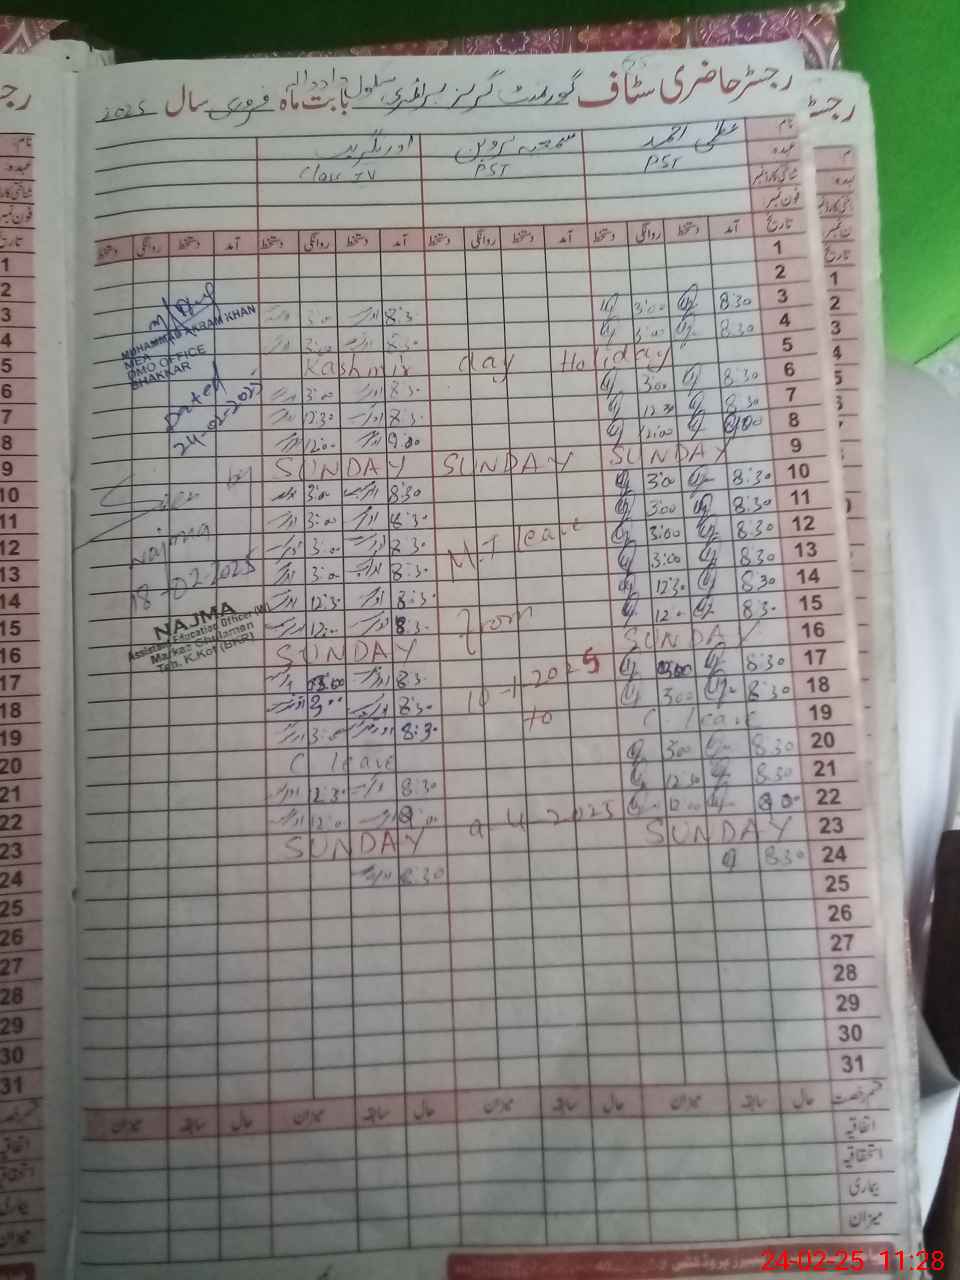 رجسٹر حاضری سٹاف گورنمنٹ گرلز پرائمری سکول بابت ماہ فروری سال 2025
نام عظمیٰ احمد سمیعہ پروین اورنگزیب
عہدہ PST PST Class IV
شناختی کارڈ نمبر
فون نمبر
تاریخ آمد دستخط روانگی دستخط آمد دستخط روانگی دستخط آمد دستخط روانگی دستخط آمد دستخط روانگی دستخط
1
2
3 8:30 3:00 8:30 3:00
4 8:30 3:00 8:30 3:00
5 Kashmir day Holiday
6 8:30 3:00 8:30 3:00
7 8:30 12:30 8:30 12:30
8 9:00 12:00 9:00 12:00
9 SUNDAY SUNDAY SUNDAY
10 8:30 3:00 8:30 3:00
11 8:30 3:00 8:30 3:00
12 8:30 3:00 8:30 3:00
13 8:30 3:00 8:30 3:00
14 8:30 12:30 8:30 12:30
15 8:30 12:00 8:30 12:00
16 SUNDAY SUNDAY
17 8:30 3:00 8:30 3:00
18 8:30 3:00 8:30 3:00
19 C. leave 8:30 3:00
20 8:30 3:00 C leave
21 8:30 12:30 8:30 12:30
22 9:00 12:00 9:00 12:00
23 SUNDAY SUNDAY
24 8:30 8:30
25
26
27
28
29
30
31
M.T leave
From
10-1-2025
to
9-4-2025
MUHAMMAD AKRAM KHAN
MEA
DMO OFFICE
BHAKKAR
Dated
24-02-2025
Seen by
Najma
18-02-2025
NAJMA
Assistant Education Officer (W)
Markaz Ghulaman
Teh. K.Kot (BKR)
قسم رخصت حال سابقہ میزان حال سابقہ میزان حال سابقہ میزان حال سابقہ میزان
اتفاقیہ
استحقاقیہ
بیماری
میزان
24-02-25 11:28